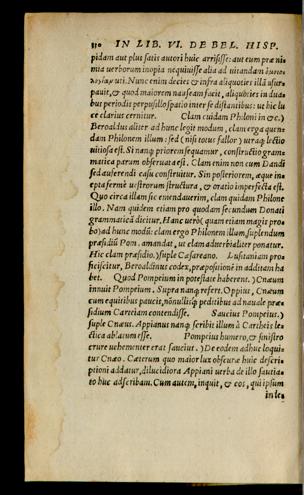 310 IN LIB. VI. DE BEL. HISP.
pidam aut plus satis autori huic arrisisse: aut eum præ ni-
mia uerborum inopia nequiuisse alia ad uitandam
uti. Nunc enim decies & infra aliquoties illā usur-
pauit, & quod maiorem nauseam facit, aliquoties in dua-
bus periodis perpusillo spatio inter se distantibus: ut hic lu
ce clarius cernitur. Clam cuidam Philoni in &c.)
Beroaldus aliter ad hunc legit modum, clam erga quen-
dam Philonem illum: sed (nisi totus fallor) utraq; lectio
uitiosa est. Si nanq; priorem sequamur, constructio gram-
matica parum obseruata est. Clam enim non cum Dandi
sed auferendi casu construitur. Sin posteriorem, æque in-
epta fermè uestrorum structura, & oratio imperfecta est.
Quo circa illam sic emendauerim, clam quidam Philone
illo. Nam quidem etiam pro quodam secundum Donati
grammaticā dicitur, Hanc uerò (quam etiam magis pro-
bo) ad hunc modū: clam ergo Philonem illum, suplendum
præsidiū Pom. amandat, ut clam aduerbialiter ponatur.
Hic clam præsidio.) suple Cæsareano. Lusitaniam pro
ficiscitur, Beroaldinus codex, præpositionē in additam ha
bet. Quod Pompeium in potestate haberent.) Cnæum
innuit Pompeium. Supra nanq; refert. Oppius, Cnæum
cum equitibus paucis, nōnullisq; peditibus ad nauale præ-
sidium Carteiam contendisse. Saucius Pompeius.)
suple Cnæus. Appianus nanq; scribit illum à Cartheis le-
ctica ablatum esse. Pompeius humero, & sinistro
crure uehementer erat saucius.) De eodem adhuc loqui-
tur Cnæo. Cæterum quo maior lux obscuræ huic descri-
ptioni addatur, dilucidiora Appiani uerba de illo sautia-
to huc adscribam. Cum autem, inquit, & eos, qui ipsum
in le